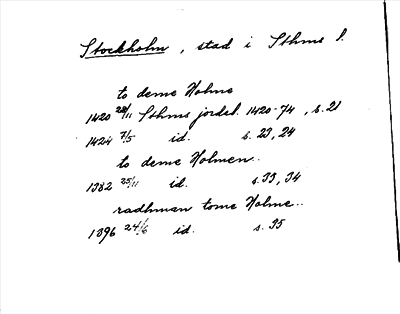 Stockholm, stad i Sthms l.
to deme Holme
1420 28/11 Sthms jordeb. 1420-74, s. 21
1424 7/5 id. s. 23, 24
to deme Holmen..
1382 25/11 id. s. 33, 34
radhman tome Holme..
1396 24/6 id. s. 35